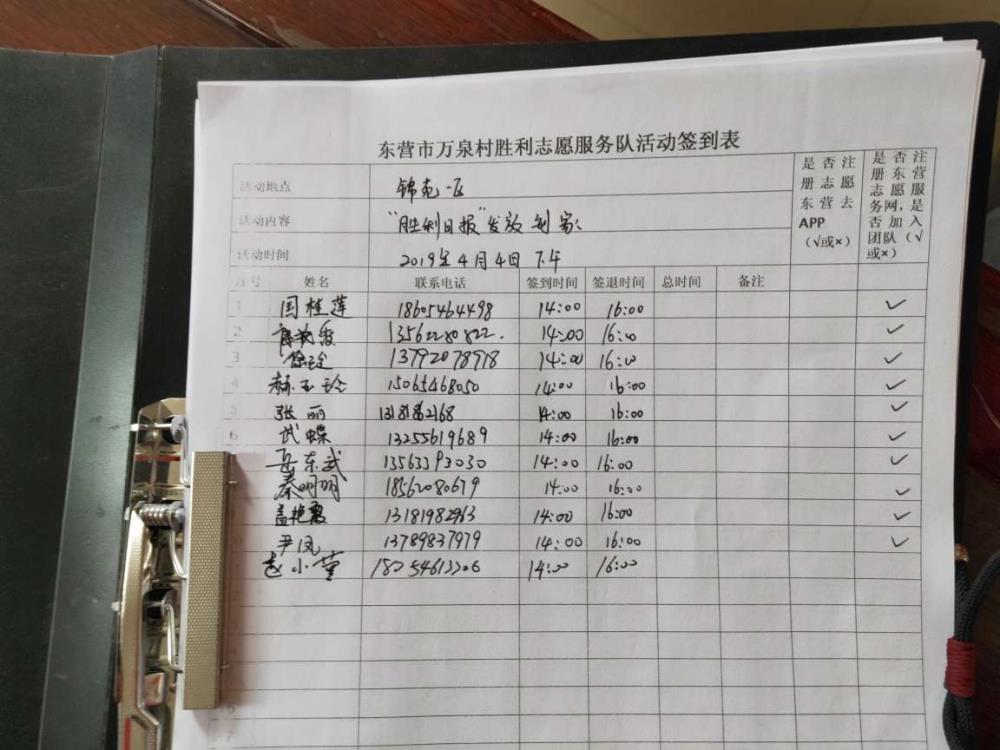 东营市万泉村胜利志愿服务队活动签到表
活动地点 锦苑一区
活动内容 "胜利日报"发放到家
活动时间 2019年4月4日下午
是否注册志愿东营去APP（√或×）
是否注册东营志愿服务网，是否加入团队（√或×）
序号 姓名 联系电话 签到时间 签退时间 总时间 备注
1 国桂莲 18605464498 14:00 16:00 ✓
2 13562280822. 14:00 16:00 ✓
3 徐玲 13792078978 14:00 16:00 ✓
4 赫玉玲 15065468050 14:00 16:00 ✓
5 张丽 14:00 16:00 ✓
6 武蝶 13255619689 14:00 16:00 ✓
岳东武 13563393030 14:00 16:00 ✓
秦明明 18562080679 14:00 16:00 ✓
盖艳霞 13181982963 14:00 16:00 ✓
尹凤 13789837979 14:00 16:00 ✓
赵小莹 18254613206 14:00 16:00